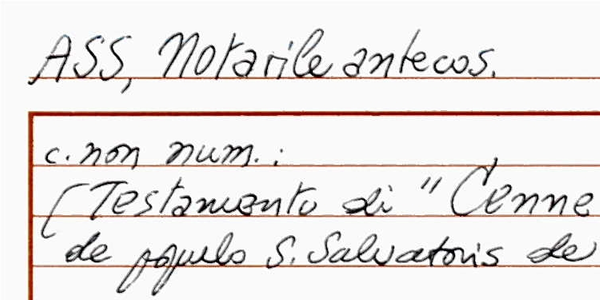 ASS, Notarile antecos.
c. non num.:
[Testamento di "Cenne
de populo S. Salvatoris de